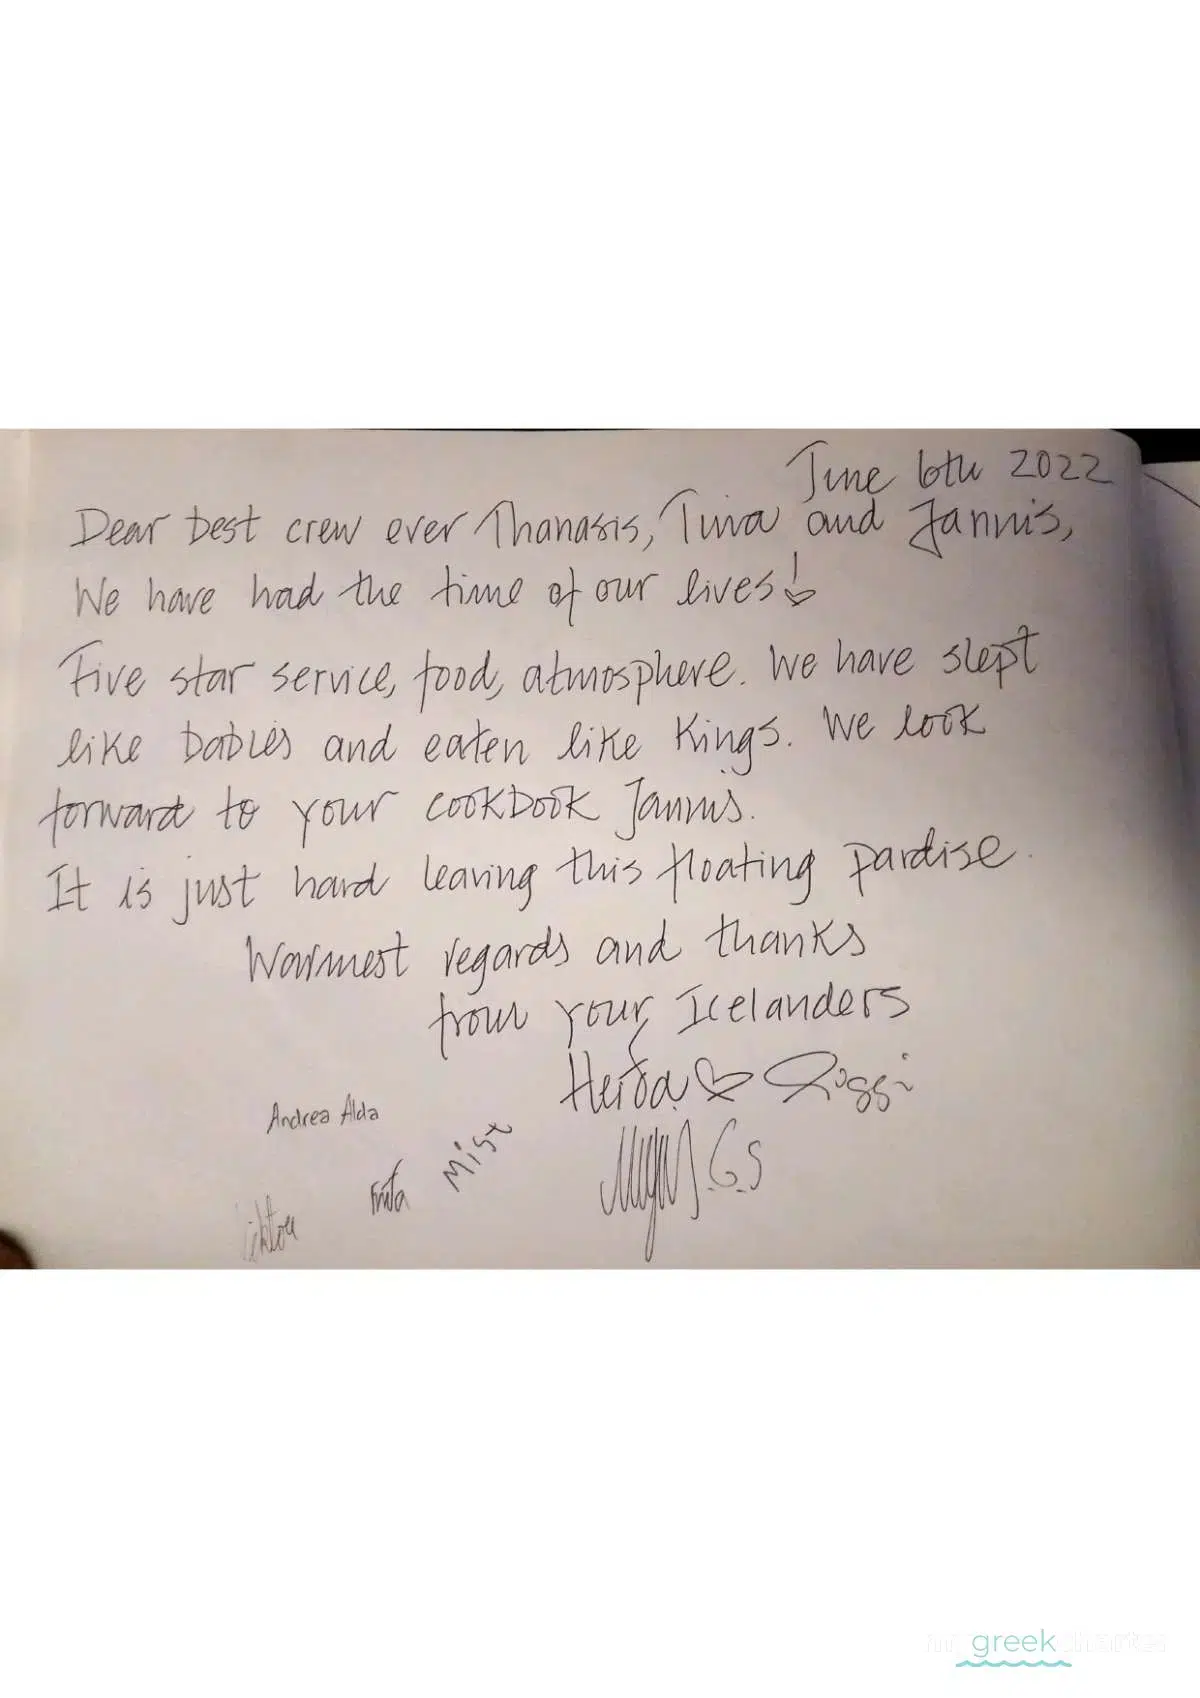 June 6th 2022
Dear best crew ever Thanasis, Tina and Jannis,
We have had the time of our lives!
Five star service, food, atmosphere. We have slept
like babies and eaten like Kings. We look
forward to your cookbook Jannis.
It is just hard leaving this floating pardise.
Warmest regards and thanks
from your Icelanders
Heiða Siggi
Andrea Alda
Mist
G.S
greek